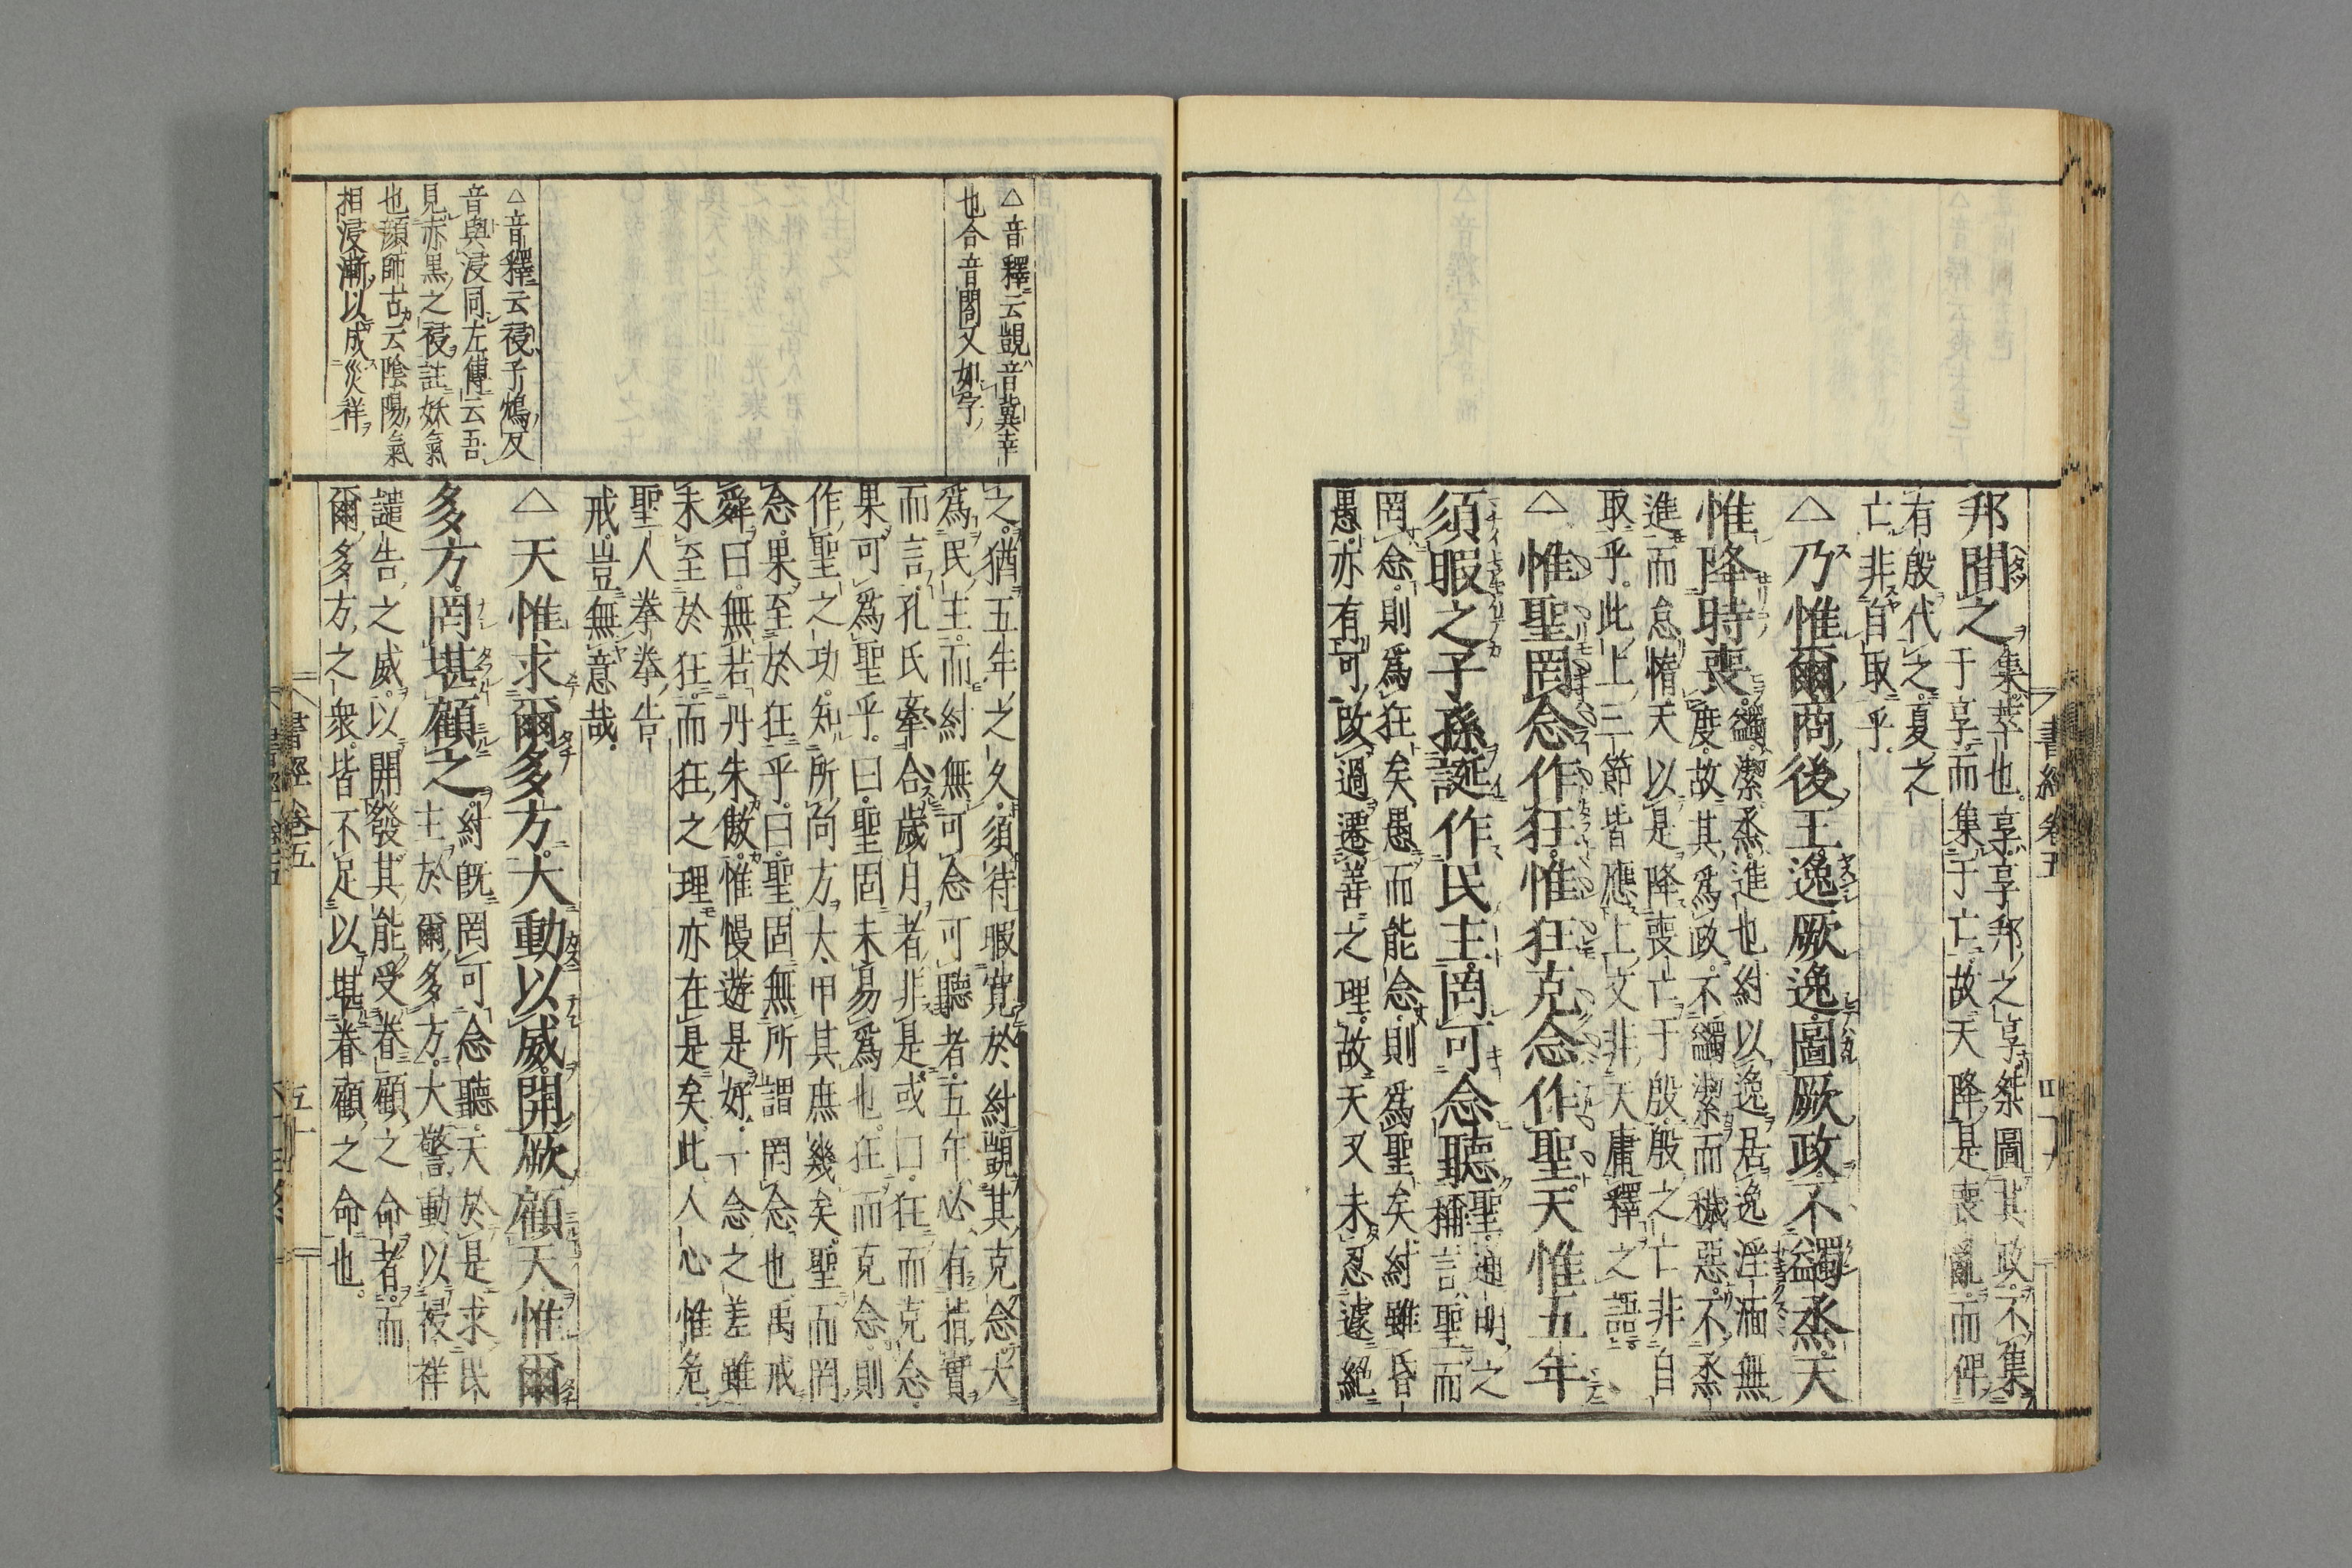 書經卷五
邦間之
集萃也享享邦之享桀圖其政不集
于享而集于亡故天降是喪亂而俾
有殷代之夏之
亡非自取乎
△乃惟爾商後王逸厥逸圖厥政不蠲烝天
惟降時喪
蠲潔烝進也紂以逸居逸淫湎無
度故其爲政不蠲潔而穢惡不烝
進而怠惰天以是降喪亡于殷殷之亡非自
取乎此上三節皆應上文非天庸釋之語
△惟聖罔念作狂惟狂克念作聖天惟五年
須暇之子孫誕作民主罔可念聽
聖通明之
稱言聖而
罔念則爲狂矣愚而能念則爲聖矣紂雖昏
愚亦有可改過遷善之理故天又未忍遽絕
△音釋云覬音冀幸
也合音閤又如字
之猶五年之久須待暇寬於紂覬其克念大
爲民主而紂無可念可聽者五年必有指實
而言孔氏牽合歲月者非是或曰狂而克念
果可爲聖乎曰聖固未易爲也狂而克念則
作聖之功知所向方太甲其庶幾矣聖而罔
念果至於狂乎曰聖固無所謂罔念也禹戒
舜曰無若丹朱傲惟慢遊是好一念之差雖
未至於狂而狂之理亦在是矣此人心惟危
聖人拳拳告
戒豈無意哉
△音釋云祲子鴆反
音與浸同左傳云吾
見赤黑之祲註妖氣
也顔師古云陰陽氣
相浸漸以成災祥
△天惟求爾多方大動以威開厥顧天惟爾
多方罔堪顧之
紂既罔可念聽天於是求民
主於爾多方大警動以祲祥
譴告之威以開發其能受眷顧之命者而
爾多方之衆皆不足以堪眷顧之命也
書經卷五
五十